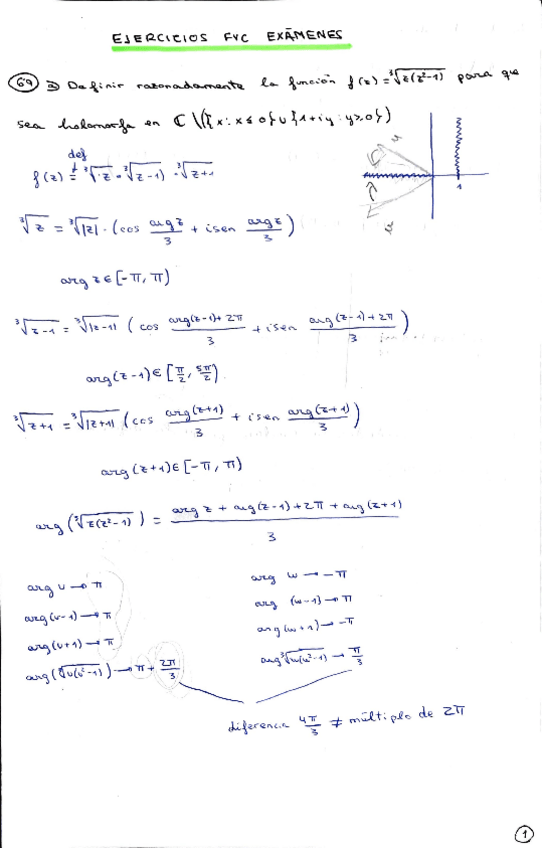 EJERCICIOS FVC EXÁMENES
69 a) Definir razonadamente la función f(z) = ∛z(z²-1) para que
sea holomorfa en ℂ \ ({x : x ≤ 0} ∪ {1+iy : y ≥ 0})
def
f(z) = ∛z · ∛z-1 · ∛z+1
1
∛z = ∛|z| · (cos arg z/3 + i sen arg z/3)
arg z ∈ [-π, π)
∛z-1 = ∛|z-1| (cos arg(z-1)+2π/3 + i sen arg(z-1)+2π/3)
arg(z-1) ∈ [π/2, 5π/2).
∛z+1 = ∛|z+1| (cos arg(z+1)/3 + i sen arg(z+1)/3)
arg(z+1) ∈ [-π, π)
arg(∛z(z²-1)) = arg z + arg(z-1) + 2π + arg(z+1)/3
arg u → π
arg(u-1) → π
arg(u+1) → π
arg(∛u(u²-1)) → π + 2π/3
arg w → -π
arg (w-1) → π
arg(w+1) → -π
arg ∛w(w²-1) → π/3
diferencia 4π/3 ≠ múltiplo de 2π
1